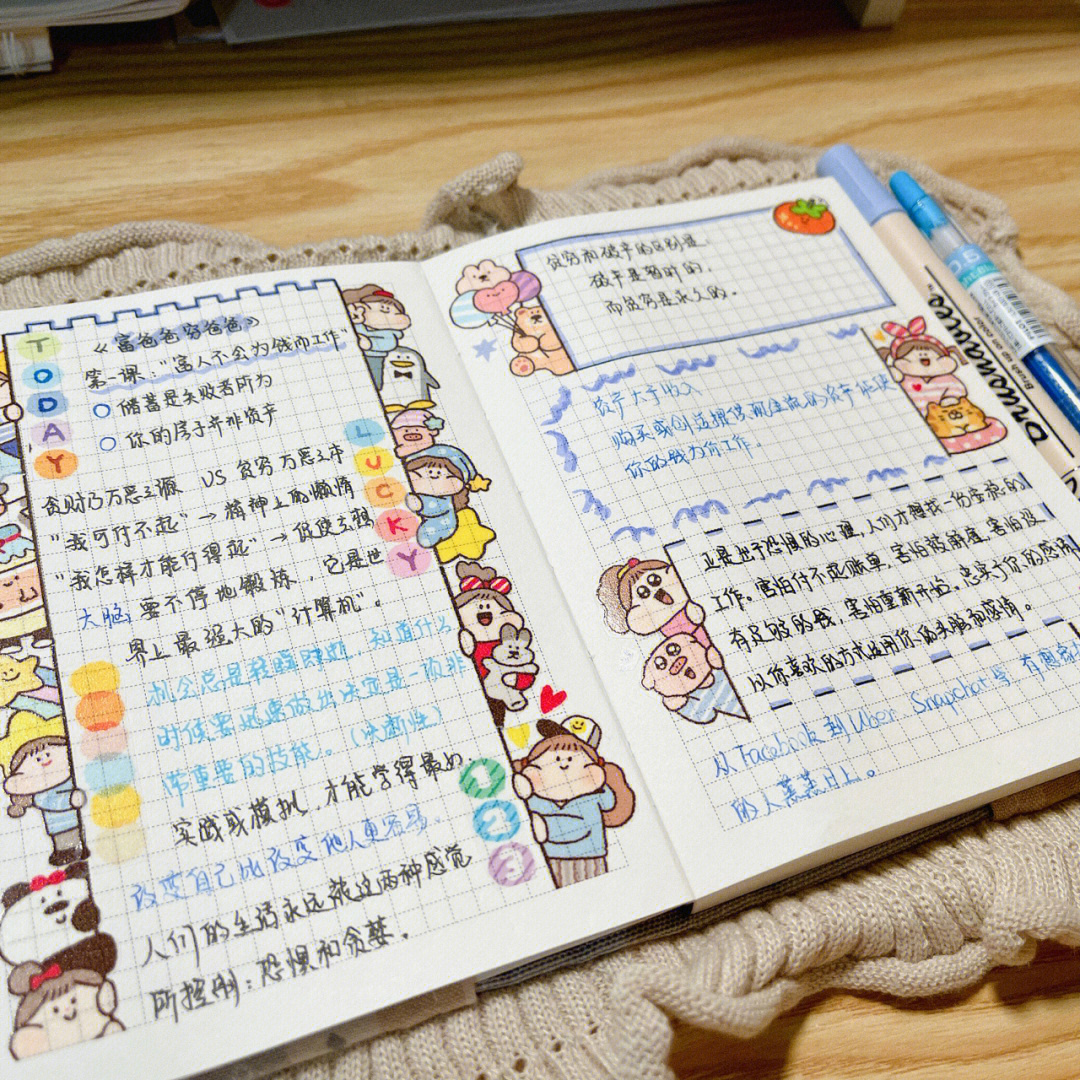 TODAY
《富爸爸穷爸爸》
第一课："富人不会为钱而工作"
○ 储蓄是失败者所为
○ 你的房子并非资产
LUCKY
贪财乃万恶之源 VS 贫穷乃万恶之本
"我可付不起" → 精神上的懒惰
"我怎样才能付得起" → 促使去想
大脑：要不停地锻炼，它是世
界上最强大的"计算机"。
机会总是转瞬即逝，知道什么
时候要迅速做出决定是一项非
常重要的技能。（决断性）
实践或模拟，才能学得最好。
改变自己比改变他人更容易。
人们的生活永远被这两种感觉
所控制：恐惧和贪婪。
1
2
3
贫穷和破产的区别是
破产是暂时的，
而贫穷是永久的。
资产大于收入
购买或创造提供现金流的资产
你的钱为你工作。
正是出于恐惧的心理，人们才想找一份安稳的
工作。害怕付不起账单，害怕被解雇，害怕没
有足够的钱，害怕重新开始。忠实于你的感情
以你喜欢的方式运用你的头脑和感情。
从Facebook到Uber Snapchat等 有想
的人蒸蒸日上。
Brush up on color
0.5